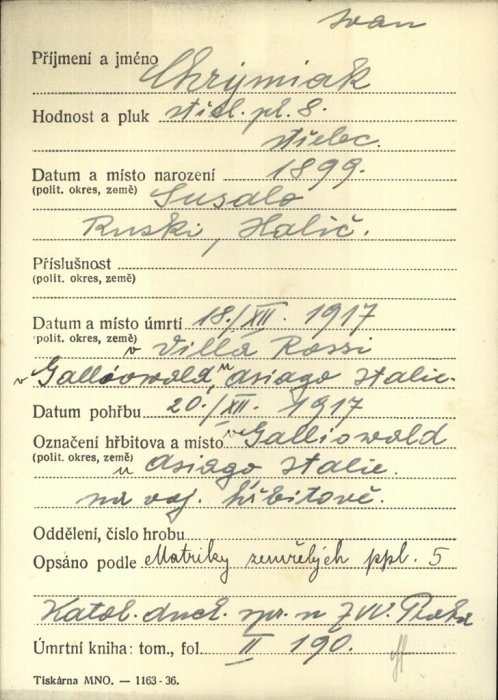 Ivan
Příjmení a jméno Chrymiak
Hodnost a pluk střel. pl. 8.
střelec.
Datum a místo narození 1899.
(polit. okres, země) Susalo
Ruski, Halič.
Příslušnost
(polit. okres, země)
Datum a místo úmrtí 18./XII. 1917
(polit. okres, země) v Villa Rossi
v Galliowald, u Asiago Italie.
Datum pohřbu 20./XII. 1917
Označení hřbitova a místo v Galliowald
(polit. okres, země) u Asiago Italie.
na voj. hřbitově.
Oddělení, číslo hrobu
Opsáno podle Matriky zemřelých ppl. 5
Katol. duch. spr. u ZVV. Praha
Úmrtní kniha: tom., fol. II 190.
Tiskárna MNO. — 1163-36.